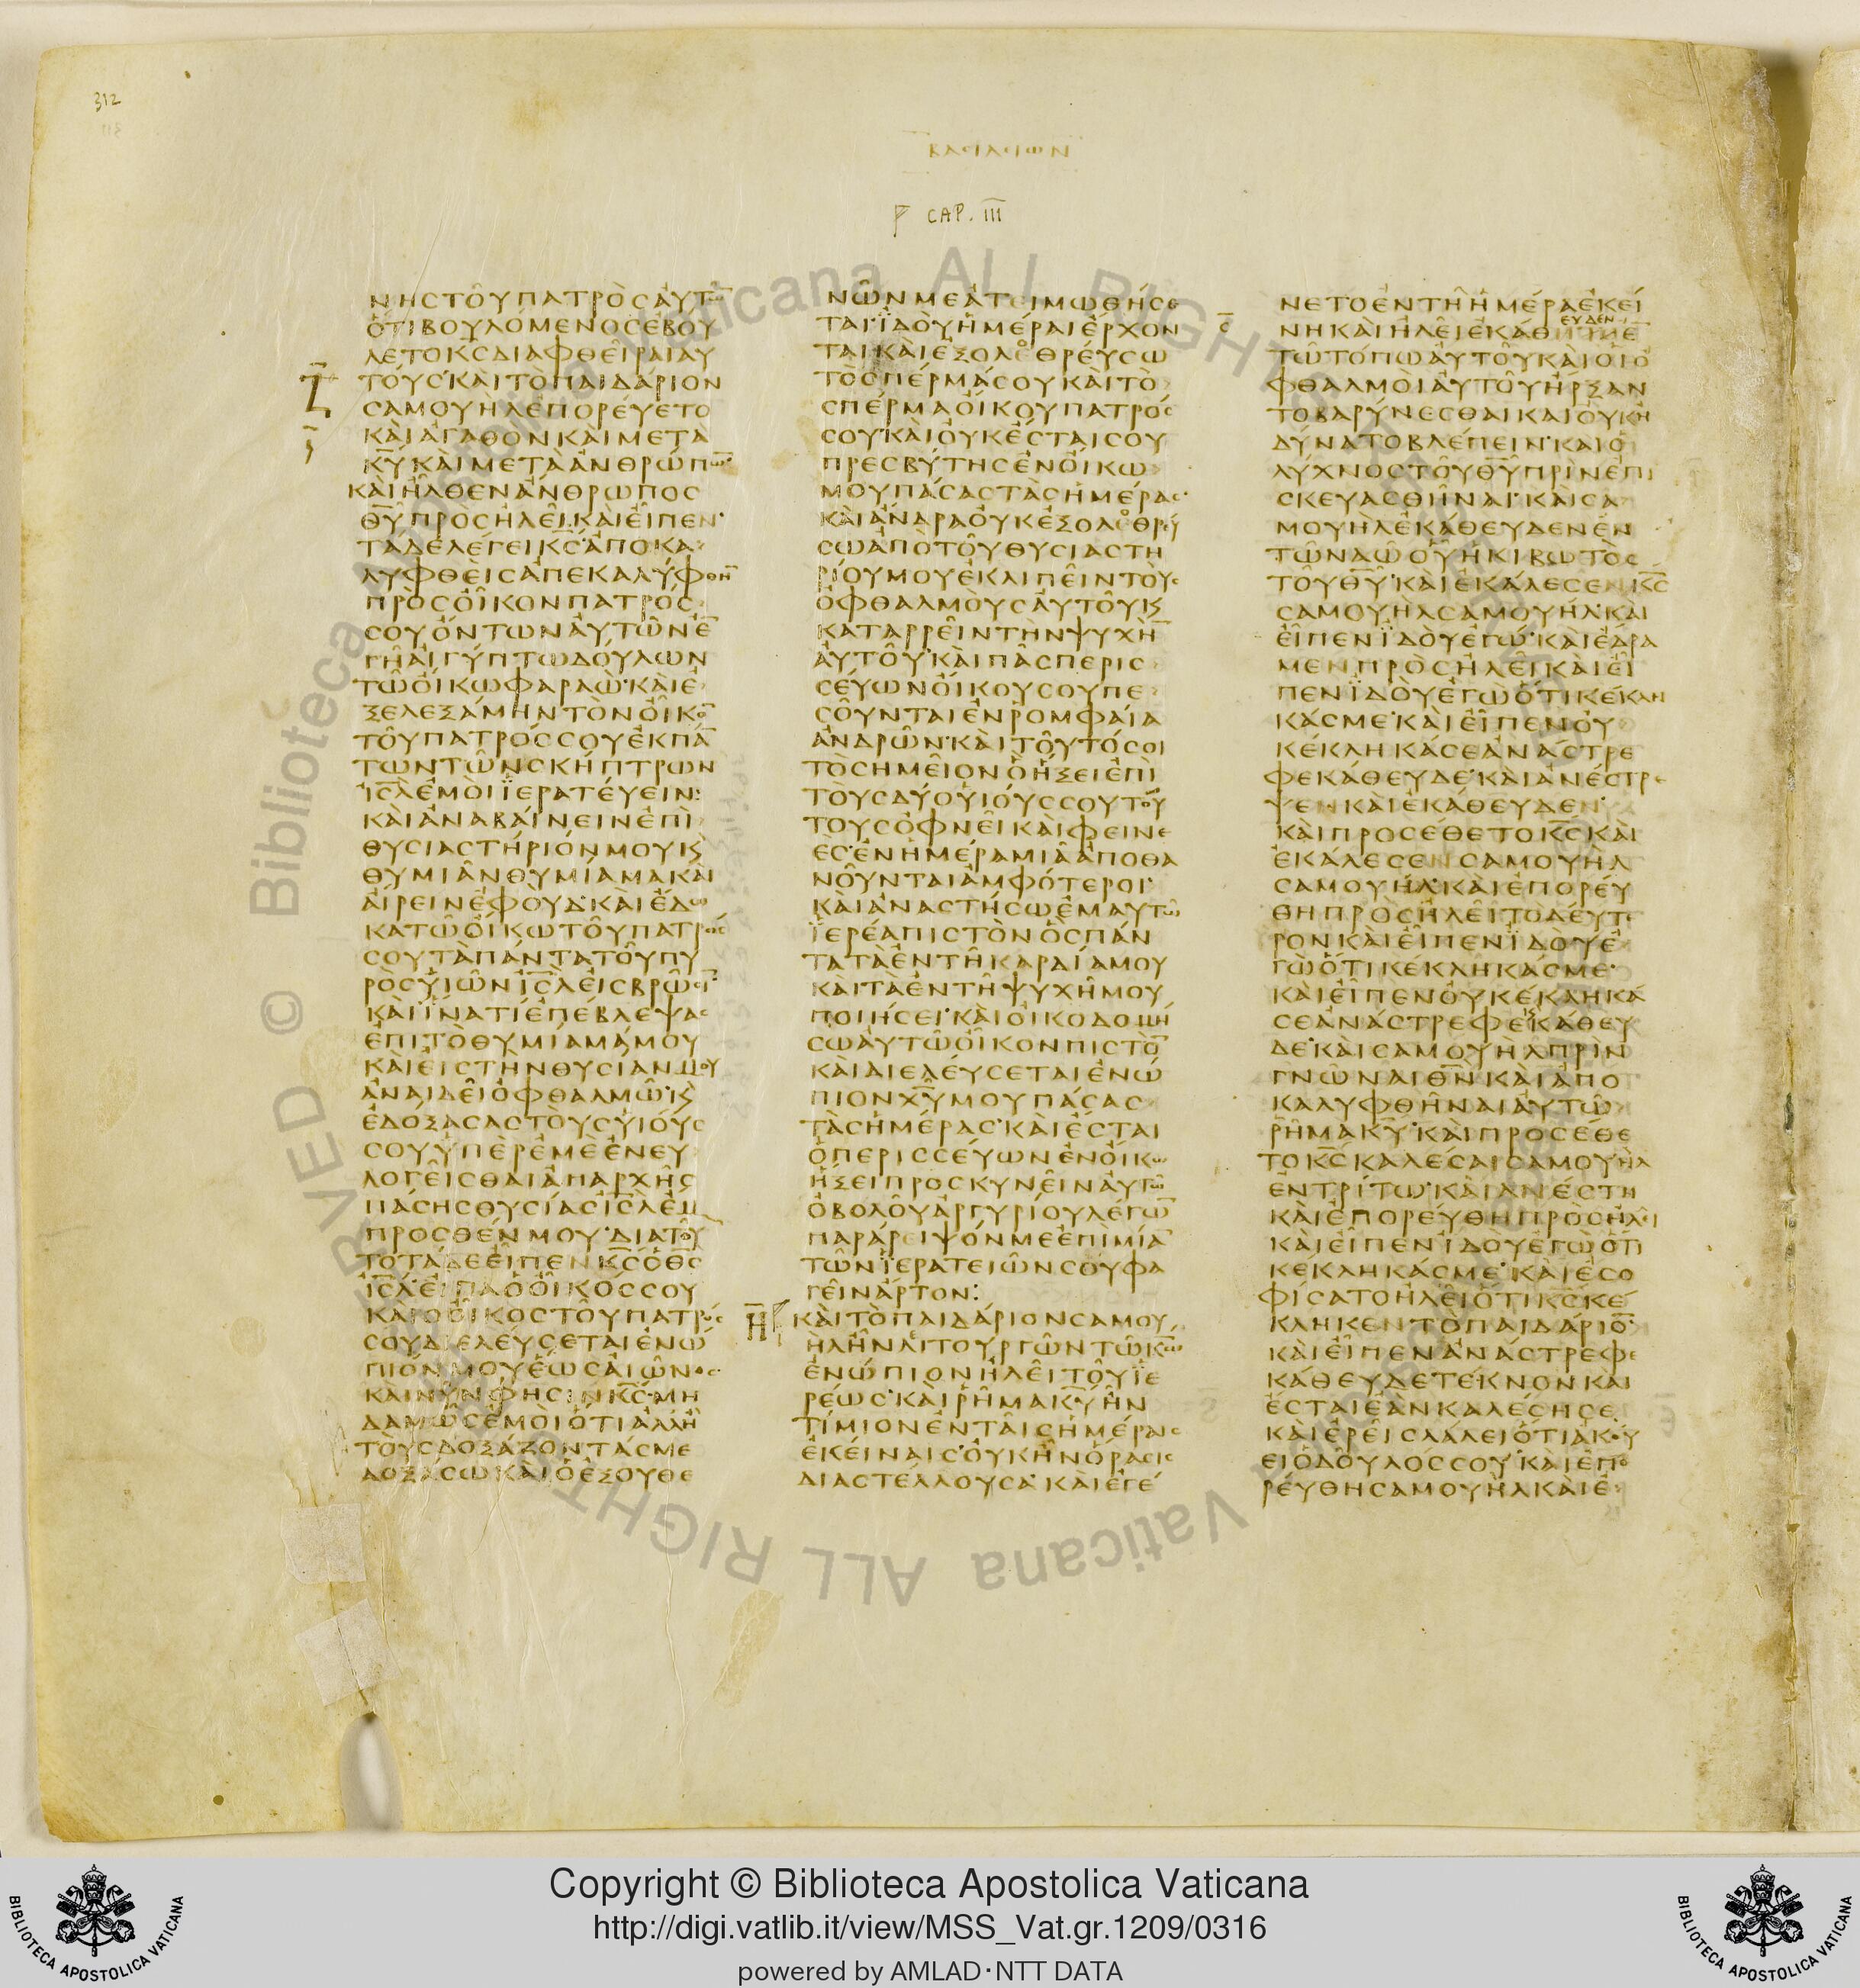 312
ΒΑΣΙΛΕΙΩΝ
CAP. III
ΝΗϹΤΟΥΠΑΤΡΟϹΑΥΤΩ̅
ΟΤΙΒΟΥΛΟΜΕΝΟϹΕΒΟΥ
ΛΕΤΟΚ̅Ϲ̅ΔΙΑΦΘΕΙΡΑΙΑΥ
ΤΟΥϹ·ΚΑΙΤΟΠΑΙΔΑΡΙΟΝ
ϹΑΜΟΥΗΛΕΠΟΡΕΥΕΤΟ
ΚΑΙΑΓΑΘΟΝΚΑΙΜΕΤΑ
Κ̅Υ̅ΚΑΙΜΕΤΑΑΝΘΡΩΠΩ̅·
ΚΑΙΗΛΘΕΝΑΝΘΡΩΠΟϹ
Θ̅Υ̅ΠΡΟϹΗΛΕΙΚΑΙΕΙΠΕΝ·
ΤΑΔΕΛΕΓΕΙΚ̅Ϲ̅·ΑΠΟΚΑ
ΛΥΦΘΕΙϹΑΠΕΚΑΛΥΦΘΗ̅
ΠΡΟϹΟΙΚΟΝΠΑΤΡΟϹ
ϹΟΥΟΝΤΩΝΑΥΤΩΝΕ̅
ΓΗΑΙΓΥΠΤΩΔΟΥΛΩΝ
ΤΩΟΙΚΩΦΑΡΑΩ·ΚΑΙΕ
ΞΕΛΕΞΑΜΗΝΤΟΝΟΙΚΟ̅
ΤΟΥΠΑΤΡΟϹϹΟΥΕΚΠΑ̅
ΤΩΝΤΩΝϹΚΗΠΤΡΩΝ
Ι̅Ϲ̅Λ̅ΕΜΟΙΪΕΡΑΤΕΥΕΙΝ:
ΚΑΙΑΝΑΒΑΙΝΕΙΝΕΠΙ
ΘΥϹΙΑϹΤΗΡΙΟΝΜΟΥΚϗ
ΘΥΜΙΑΝΘΥΜΙΑΜΑΚΑΙ
ΑΙΡΕΙΝΕΦΟΥΔ·ΚΑΙΕΔΩ
ΚΑΤΩΟΙΚΩΤΟΥΠΑΤΡΟϹ
ϹΟΥΤΑΠΑΝΤΑΤΟΥΠΥ
ΡΟϹΥΙΩΝΙ̅Ϲ̅Λ̅ΕΙϹΒΡΩϹΙ̅
ΚΑΙΪΝΑΤΙΕΠΕΒΛΕΨΑϹ
ΕΠΙΤΟΘΥΜΙΑΜΑΜΟΥ
ΚΑΙΕΙϹΤΗΝΘΥϹΙΑΝΜΟΥ
ΑΝΑΙΔΕΙΟΦΘΑΛΜΩ·ϗ
ΕΔΟΞΑϹΑϹΤΟΥϹΥΙΟΥϹ
ϹΟΥΥΠΕΡΕΜΕΕΝΕΥ
ΛΟΓΕΙϹΘΑΙΑΠΑΡΧΗϹ
ΠΑϹΗϹΘΥϹΙΑϹΙ̅Ϲ̅Λ̅ΕΜ
ΠΡΟϹΘΕΝΜΟΥ·ΔΙΑΤΟΥ
ΤΟΤΑΔΕΕΙΠΕΝΚ̅Ϲ̅ΟΘ̅Ϲ̅
Ι̅Ϲ̅Λ̅·ΕΙΠΑΟΟΙΚΟϹϹΟΥ
ΚΑΙΟΟΙΚΟϹΤΟΥΠΑΤΡΟϹ
ϹΟΥΔΙΕΛΕΥϹΕΤΑΙΕΝΩ
ΠΙΟΝΜΟΥΕΩϹΑΙΩΝΟϹ
ΚΑΙΝΥΝΦΗϹΙΝΚ̅Ϲ̅·ΜΗ
ΔΑΜΩϹΕΜΟΙΟΤΙΑΛΛΗ
ΤΟΥϹΔΟΞΑΖΟΝΤΑϹΜΕ
ΔΟΞΑϹΩΚΑΙΟΕΞΟΥΘΕ
ΝΩΝΜΕΑΤΕΙΜΩΘΗϹΕ
ΤΑΙ·ΪΔΟΥΗΜΕΡΑΙΕΡΧΟΝ
ΤΑΙΚΑΙΕΞΟΛΕΘΡΕΥϹΩ
ΤΟϹΠΕΡΜΑϹΟΥΚΑΙΤΟ
ϹΠΕΡΜΑΟΙΚΟΥΠΑΤΡΟϹ
ϹΟΥ·ΚΑΙΟΥΚΕϹΤΑΙϹΟΥ
ΠΡΕϹΒΥΤΗϹΕΝΟΙΚΩ
ΜΟΥΠΑϹΑϹΤΑϹΗΜΕΡΑϹ·
ΚΑΙΑΝΔΡΑΟΥΚΕΞΟΛΕΘΡΕΥ
ϹΩΑΠΟΤΟΥΘΥϹΙΑϹΤΗ
ΡΙΟΥΜΟΥΕΚΛΙΠΕΙΝΤΟΥϹ
ΟΦΘΑΛΜΟΥϹΑΥΤΟΥϗ
ΚΑΤΑΡΡΕΙΝΤΗΝΨΥΧΗ̅
ΑΥΤΟΥ·ΚΑΙΠΑϹΠΕΡΙϹ
ϹΕΥΩΝΟΙΚΟΥϹΟΥΠΕ
ϹΟΥΝΤΑΙΕΝΡΟΜΦΑΙΑ
ΑΝΔΡΩΝ·ΚΑΙΤΟΥΤΟϹΟΙ
ΤΟϹΗΜΕΙΟΝΟΗΞΕΙΕΠΙ
ΤΟΥϹΔΥΟΥΙΟΥϹϹΟΥΤΟΥ
ΤΟΥϹΟΦΝΕΙΚΑΙΦΕΙΝΕ
ΕϹ·ΕΝΗΜΕΡΑΜΙΑΑΠΟΘΑ
ΝΟΥΝΤΑΙΑΜΦΟΤΕΡΟΙ·
ΚΑΙΑΝΑϹΤΗϹΩΕΜΑΥΤΩ
ΪΕΡΕΑΠΙϹΤΟΝΟϹΠΑΝ
ΤΑΤΑΕΝΤΗΚΑΡΔΙΑΜΟΥ
ΚΑΙΤΑΕΝΤΗΨΥΧΗΜΟΥ
ΠΟΙΗϹΕΙ·ΚΑΙΟΙΚΟΔΟΜΗ
ϹΩΑΥΤΩΟΙΚΟΝΠΙϹΤΟ̅
ΚΑΙΔΙΕΛΕΥϹΕΤΑΙΕΝΩ
ΠΙΟΝΧ̅Υ̅ΜΟΥΠΑϹΑϹ
ΤΑϹΗΜΕΡΑϹ·ΚΑΙΕϹΤΑΙ
ΟΠΕΡΙϹϹΕΥΩΝΕΝΟΙΚΩ
ΗΞΕΙΠΡΟϹΚΥΝΕΙΝΑΥΤΩ
ΟΒΟΛΟΥΑΡΓΥΡΙΟΥΛΕΓΩ̅
ΠΑΡΑΡΕΙΨΟΝΜΕΕΠΙΜΙΑ̅
ΤΩΝΪΕΡΑΤΕΙΩΝϹΟΥΦΑ
ΓΕΙΝΑΡΤΟΝ:
Η̅ ΚΑΙΤΟΠΑΙΔΑΡΙΟΝϹΑΜΟΥ
ΗΛΗΝΛΙΤΟΥΡΓΩΝΤΩΚ̅Ω̅
ΕΝΩΠΙΟΝΗΛΕΙΤΟΥΪΕ
ΡΕΩϹ·ΚΑΙΡΗΜΑΚ̅Υ̅ΗΝ
ΤΙΜΙΟΝΕΝΤΑΙϹΗΜΕΡΑΙϹ
ΕΚΕΙΝΑΙϹ·ΟΥΚΗΝΟΡΑϹΙϹ
ΔΙΑϹΤΕΛΛΟΥϹΑ·ΚΑΙΕΓΕ
ΝΕΤΟΕΝΤΗΗΜΕΡΑΕΚΕΙ
ΝΗΚΑΙΗΛΕΙΕΚΑΘΗΤΟΕ̅
ΤΩΤΟΠΩΑΥΤΟΥΚΑΙΟΙΟ
ΦΘΑΛΜΟΙΑΥΤΟΥΗΡΞΑΝ
ΤΟΒΑΡΥΝΕϹΘΑΙΚΑΙΟΥΚΗ
ΔΥΝΑΤΟΒΛΕΠΕΙΝ·ΚΑΙΟ
ΛΥΧΝΟϹΤΟΥΘ̅Υ̅ΠΡΙΝΕΠΙ
ϹΚΕΥΑϹΘΗΝΑΙ·ΚΑΙϹΑ
ΜΟΥΗΛΕΚΑΘΕΥΔΕΝΕΝ
ΤΩΝΑΩΟΥΗΚΙΒΩΤΟϹ
ΤΟΥΘ̅Υ̅·ΚΑΙΕΚΑΛΕϹΕΝΚ̅Ϲ̅
ϹΑΜΟΥΗΛϹΑΜΟΥΗΛ·ΚΑΙ
ΕΙΠΕΝΪΔΟΥΕΓΩ·ΚΑΙΕΔΡΑ
ΜΕΝΠΡΟϹΗΛΕΙΚΑΙΕΙ
ΠΕΝΪΔΟΥΕΓΩΟΤΙΚΕΚΛΗ
ΚΑϹΜΕ·ΚΑΙΕΙΠΕΝΟΥ
ΚΕΚΛΗΚΑϹΕΑΝΑϹΤΡΕ
ΦΕΚΑΘΕΥΔΕ·ΚΑΙΑΝΕϹΤΡΕ
ΨΕΝΚΑΙΕΚΑΘΕΥΔΕΝ·
ΚΑΙΠΡΟϹΕΘΕΤΟΚ̅Ϲ̅ΚΑΙ
ΕΚΑΛΕϹΕΝϹΑΜΟΥΗΛ
ϹΑΜΟΥΗΛ·ΚΑΙΕΠΟΡΕΥ
ΘΗΠΡΟϹΗΛΕΙΤΟΔΕΥΤΕ
ΡΟΝΚΑΙΕΙΠΕΝΪΔΟΥΕ
ΓΩΟΤΙΚΕΚΛΗΚΑϹΜΕ·
ΚΑΙΕΙΠΕΝΟΥΚΕΚΛΗΚΑ
ϹΕΑΝΑϹΤΡΕΦΕΚΑΘΕΥ
ΔΕ·ΚΑΙϹΑΜΟΥΗΛΠΡΙΝ
ΓΝΩΝΑΙΘ̅Ν̅ΚΑΙΑΠΟ
ΚΑΛΥΦΘΗΝΑΙΑΥΤΩ
ΡΗΜΑΚ̅Υ̅·ΚΑΙΠΡΟϹΕΘΕ
ΤΟΚ̅Ϲ̅ΚΑΛΕϹΑΙϹΑΜΟΥΗΛ
ΕΝΤΡΙΤΩ·ΚΑΙΑΝΕϹΤΗ
ΚΑΙΕΠΟΡΕΥΘΗΠΡΟϹΗΛΕΙ
ΚΑΙΕΙΠΕΝΪΔΟΥΕΓΩΟΤΙ
ΚΕΚΛΗΚΑϹΜΕ·ΚΑΙΕϹΟ
ΦΙϹΑΤΟΗΛΕΙΟΤΙΚ̅Ϲ̅ΚΕ
ΚΛΗΚΕΝΤΟΠΑΙΔΑΡΙΟ̅·
ΚΑΙΕΙΠΕΝΑΝΑϹΤΡΕΦΕ
ΚΑΘΕΥΔΕΤΕΚΝΟΝΚΑΙ
ΕϹΤΑΙΕΑΝΚΑΛΕϹΗϹΕ
ΚΑΙΕΡΕΙϹΛΑΛΕΙΟΤΙΑΚΟΥ
ΕΙΟΔΟΥΛΟϹϹΟΥ·ΚΑΙΕΠΟ
ΡΕΥΘΗϹΑΜΟΥΗΛΚΑΙΕ
Copyright © Biblioteca Apostolica Vaticana
http://digi.vatlib.it/view/MSS_Vat.gr.1209/0316
powered by AMLAD·NTT DATA
BIBLIOTECA APOSTOLICA VATICANA
BIBLIOTECA APOSTOLICA VATICANA